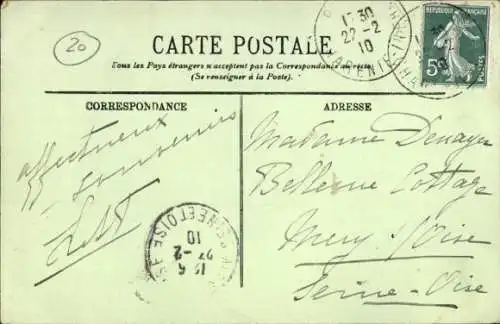 20
CARTE POSTALE
Tous les Pays étrangers n'acceptent pas la Correspondance au recto
(Se renseigner à la Poste).
CORRESPONDANCE
affectueux
souvenirs
ADRESSE
Madame Denayer
Bellevue Cottage
Mery s/Oise
Seine-Oise
REPUBLIQUE FRANÇAISE
5c
POSTES
13 30
27 -2
10
CHARENTE-INF
SEINE-ET-OISE
27 -2
10